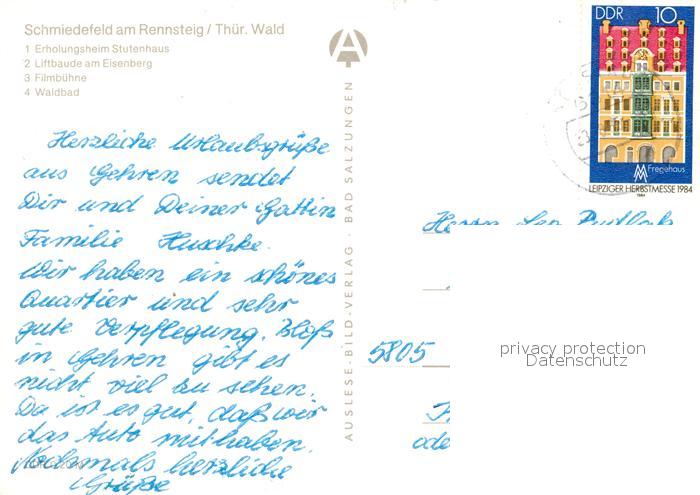 Schmiedefeld am Rennsteig / Thür. Wald
1 Erholungsheim Stutenhaus
2 Liftbaude am Eisenberg
3 Filmbühne
4 Waldbad
Herzliche Urlaubsgrüße
aus Gehren sendet
Dir und Deiner Gattin
Familie Huschke.
Wir haben ein schönes
Quartier und sehr
gute Verpflegung. Bloß
in Gehren gibt es
nicht viel zu sehen.
Da ist es gut, daß wir
das Auto mithaben.
Nochmals herzliche
Grüße
AUSLESE-BILD-VERLAG · BAD SALZUNGEN
DDR 10
Fregehaus
LEIPZIGER HERBSTMESSE 1984
1984
Herrn
5805
privacy protection
Datenschutz